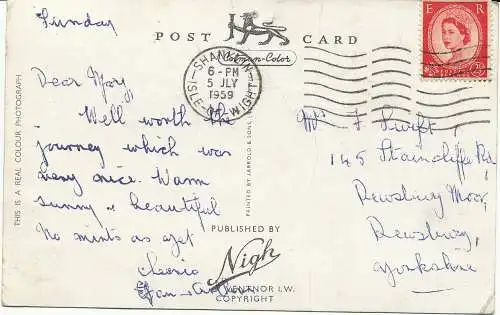 Sunday
POST CARD
Colman-Color
E R
2½D
SHANKLIN
6-PM
5 JLY
1959
ISLE OF WIGHT
Dear Mary,
Well worth the
journey which was
very nice. Warm
sunny & beautiful
No mints as yet
Cheerio
THIS IS A REAL COLOUR PHOTOGRAPH
PRINTED BY JARROLD & SONS
PUBLISHED BY
Nigh
VENTNOR I.W.
COPYRIGHT
Mrs F Swift,
145 Staincliffe Rd,
Dewsbury Moor,
Dewsbury,
Yorkshire